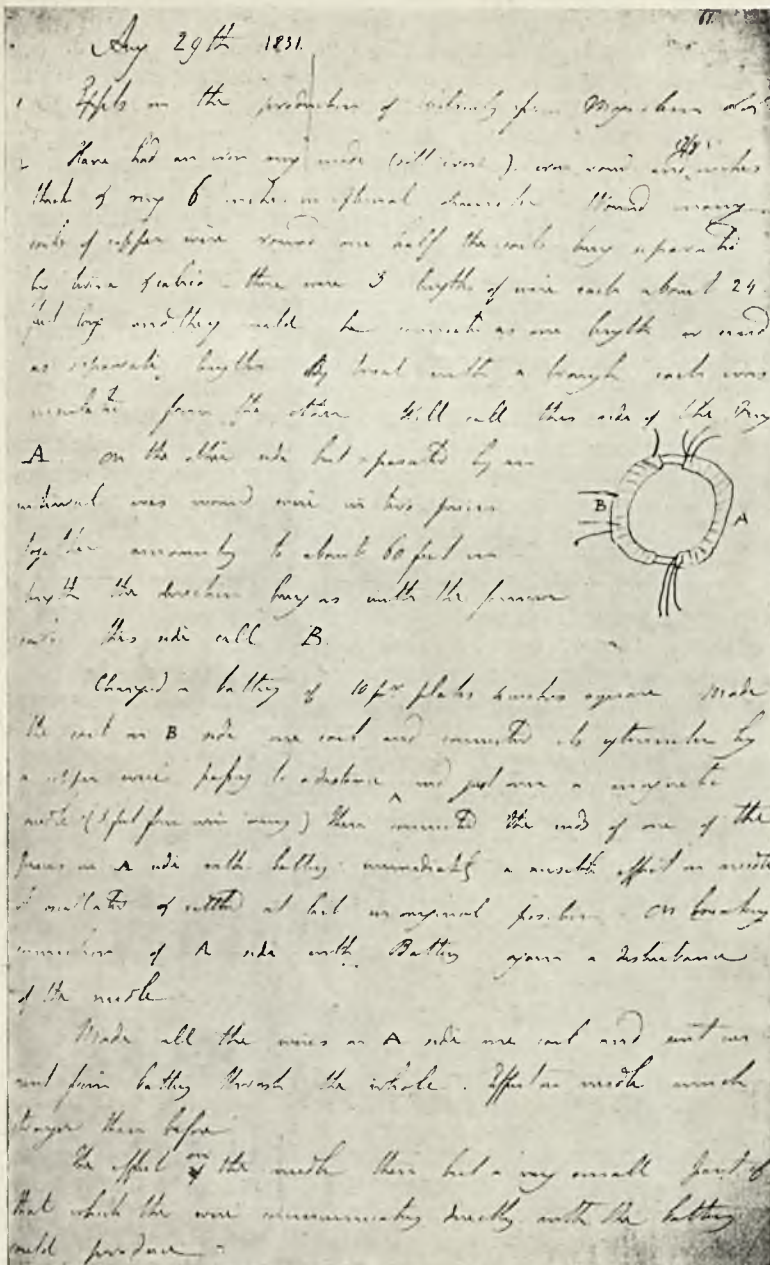 Aug 29th 1831.
1 Expts on the production of Electricity from Magnetism etc etc
2 Have had an iron ring made (soft iron), iron round and 7/8 inches
thick & ring 6 inches in external diameter. Wound many
coils of copper wire round one half the coils being separated
by twine & calico - there were 3 lengths of wire each about 24
feet long and they could be connected as one length or used
as separate lengths. By trial with a trough each was
insulated from the other. Will call this side of the Ring
A. On the other side but separated by an
interval was wound wire in two pieces
together amounting to about 60 feet in
length the direction being as with the former
coils this side call B.
B A
Charged a battery of 10 pr plates 4 inches square. Made
the coil on B side one coil and connected its extremities by
a copper wire passing to a distance and just over a magnetic
needle (3 feet from wire ring) then connected the ends of one of the
pieces on A side with battery. immediately a sensible effect on needle
It oscillated & settled at last in original position. On breaking
connection of A side with Battery again a disturbance
of the needle
Made all the wires on A side one coil and sent current
from battery through the whole. Effect on needle much
stronger than before
The effect on the needle then but a very small part of
that which the wire communicating directly with the battery
could produce